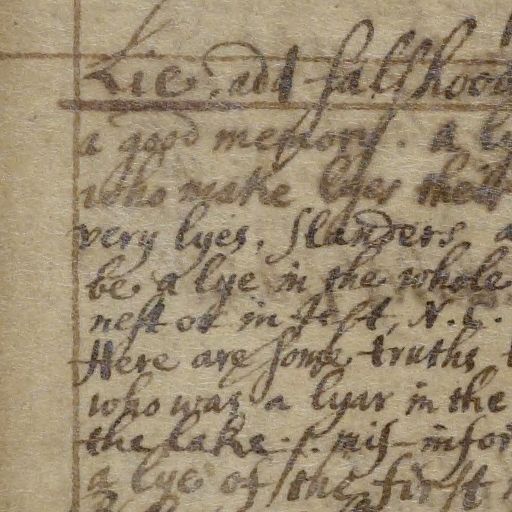 Lie, add falshood
a good memory. a ly
who make lyes their
very lyes, slanders a
be a lye in the whole
nest or in Jest, N.C.
Here are some truths t
who was a lyar in the
the lake. s. mis-infor
a lye of the first